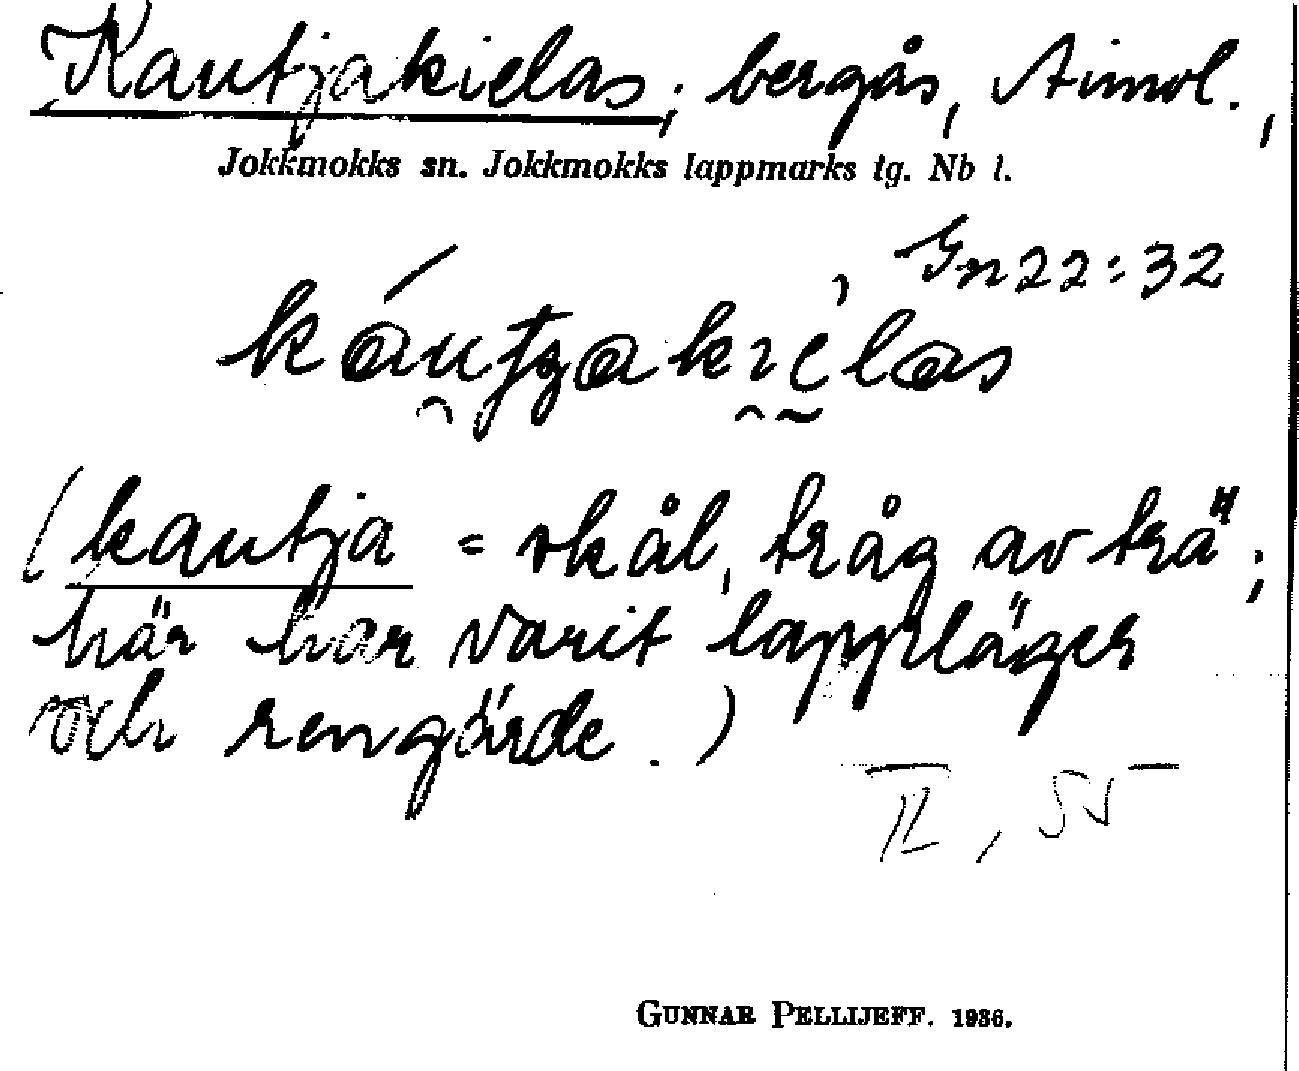 Kautjakielas; bergås, Aimol.,
Jokkmokks sn. Jokkmokks lappmarks tg. Nb l.
Gn 22:32
(kautja = skål, tråg av trä;
här har varit lappläger
och rengärde.)
II, 55
GUNNAR PELLIJEFF. 1936.